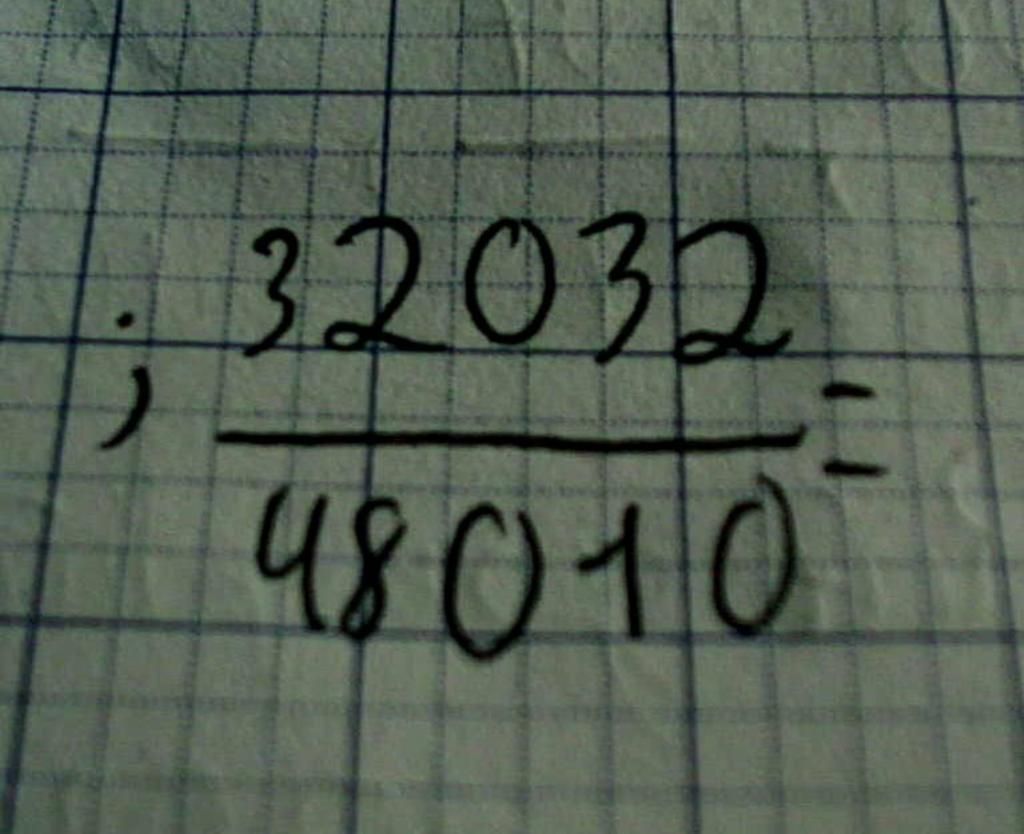 ; 32032
48010 =